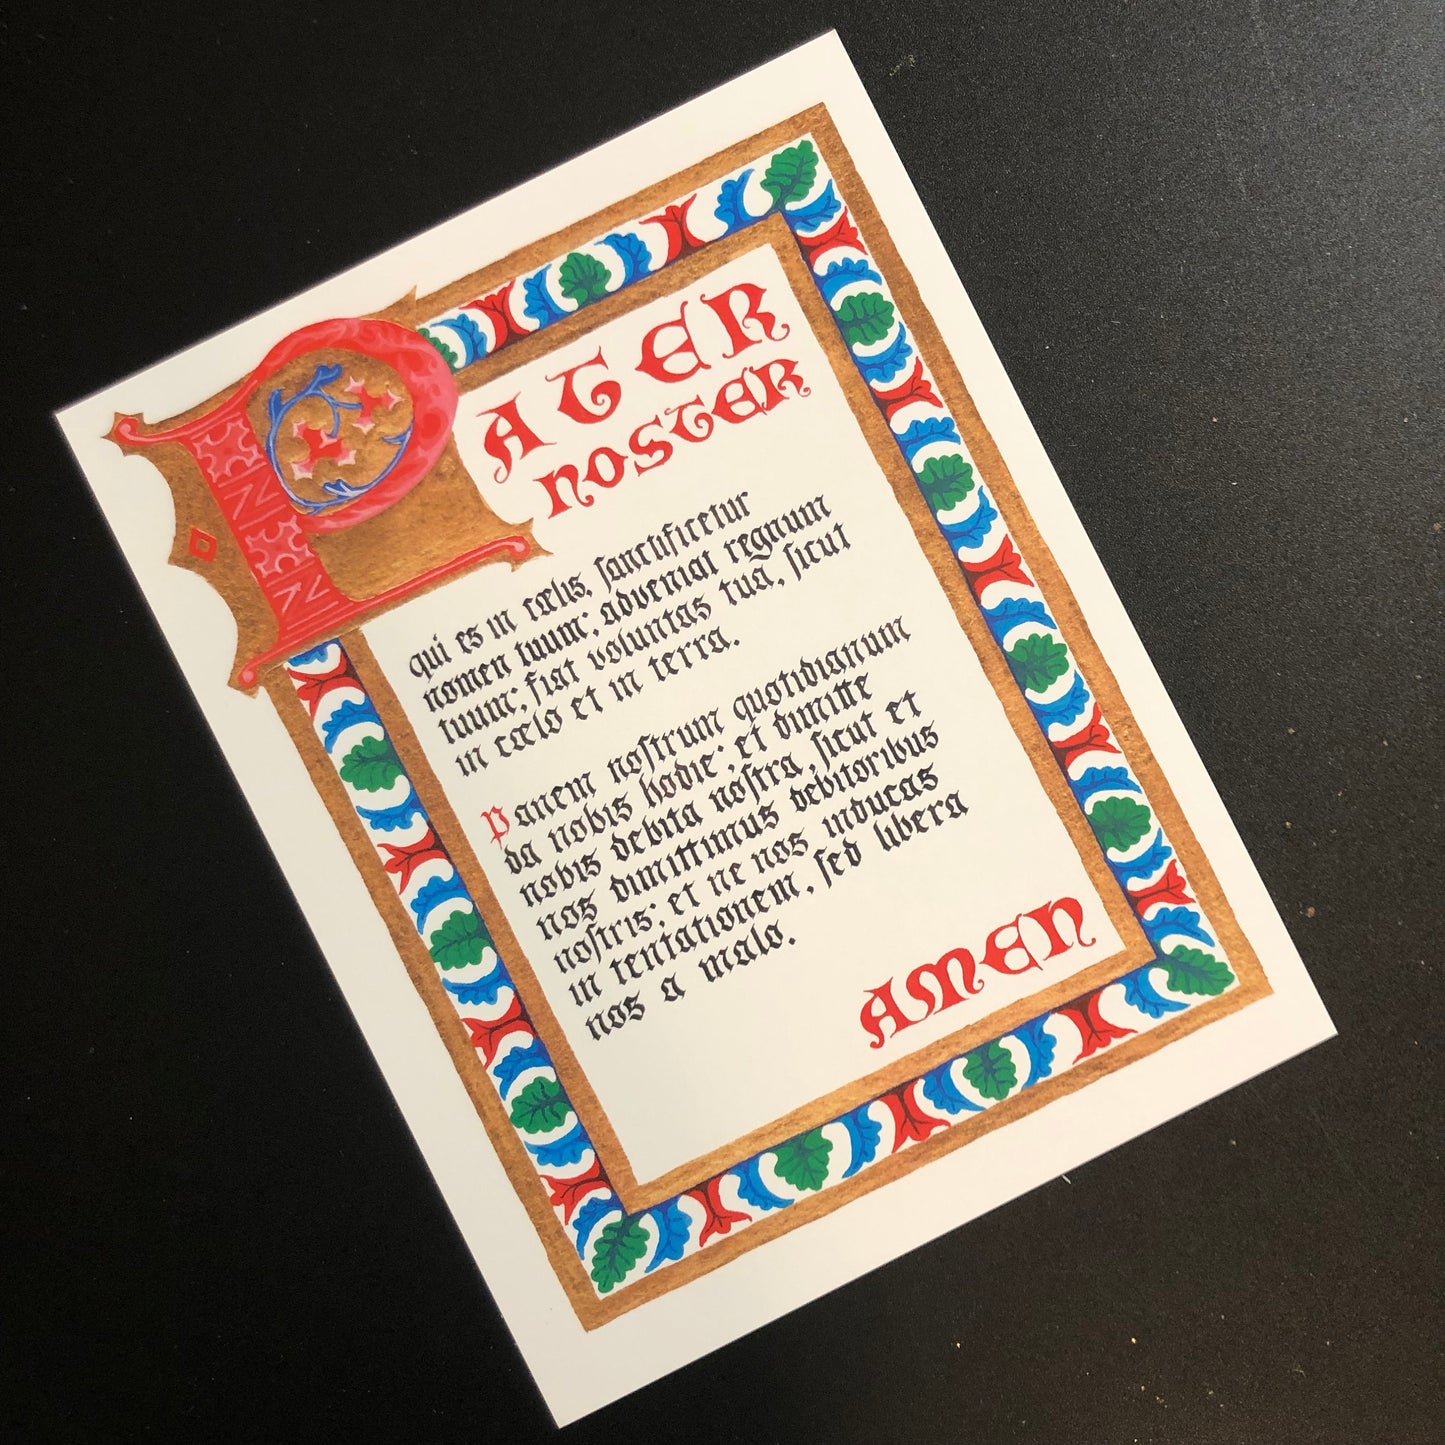 PATER
NOSTER
qui es in cœlis, sanctificetur
nomen tuum; adveniat regnum
tuum; fiat voluntas tua, sicut
in cœlo et in terra.
Panem nostrum quotidianum
da nobis hodie; et dimitte
nobis debita nostra, sicut et
nos dimittimus debitoribus
nostris; et ne nos inducas
in tentationem, sed libera
nos a malo.
AMEN